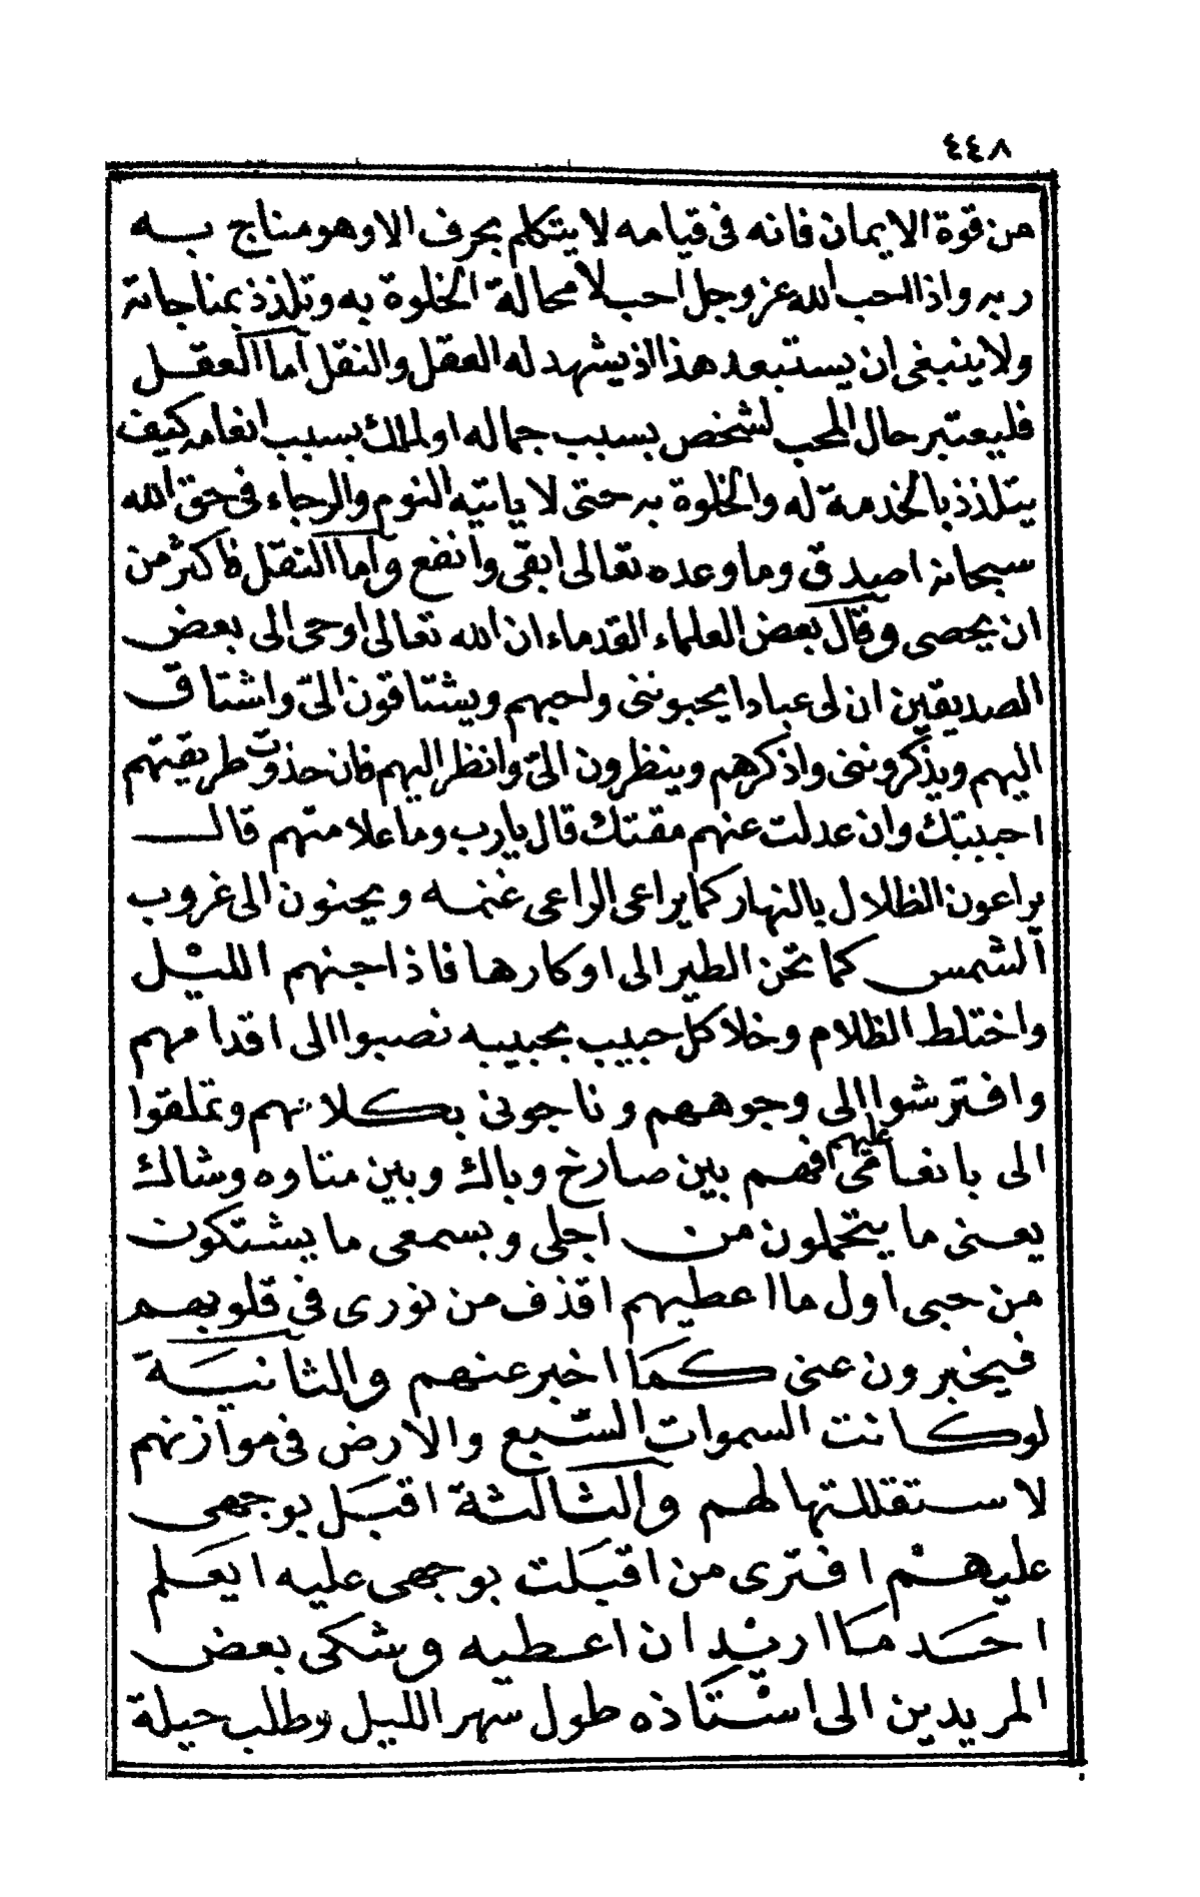 ٤٤٨
من قوة الايمان فانه فى قيامه لا يتكلم بحرف الا وهو مناج به
ربه واذا احب الله عز وجل احب لا محالة الخلوة به وتلذذ بمناجاته
ولا ينبغى ان يستبعد هذا اذ يشهد له العقل والنقل اما العقل
فليعتبر حال المحب لشخص بسبب جماله او لملك بسبب انعامه كيف
يتلذذ بالخدمة له والخلوة به حتى لا ياتيه النوم والرجاء فى حق الله
سبحانه اصدق وما وعده تعالى ابقى وانفع واما النقل فاكثر من
ان يحصى وقال بعض العلماء القدماء ان الله تعالى اوحى الى بعض
الصديقين ان لى عبادا يحبوننى واحبهم ويشتاقون الىّ واشتاق
اليهم ويذكروننى واذكرهم وينظرون الىّ وانظر اليهم فان حذوت طريقتهم
احببتك وان عدلت عنهم مقتك قال يارب وما علامتهم قال
يراعون الظلال بالنهار كما يراعى الراعى غنمه ويحنون الى غروب
الشمس كما تحن الطير الى اوكارها فاذا جنهم الليل
واختلط الظلام وخلا كل حبيب بحبيبه نصبوا الى اقدامهم
وافترشوا الى وجوههم وناجونى بكلامهم وتملقوا
الى بانعامى عليهم فهم بين صارخ وباك وبين متاوه وشاك
يعنى ما يتحملون من اجلى وبسمعى ما يشتكون
من حبى اول ما اعطيهم اقذف من نورى فى قلوبهم
فيخبرون عنى كما اخبر عنهم والثانية
لو كانت السموات السبع والارض فى موازنهم
لاستقللتها لهم والثالثة اقبل بوجهى
عليهم افترى من اقبلت بوجهى عليه ايعلم
احد ما اريد ان اعطيه وشكى بعض
المريدين الى استاذه طول سهر الليل وطلب حيلة